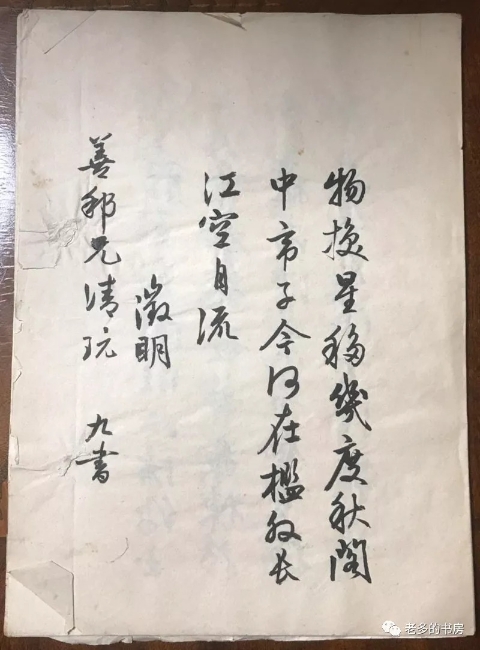 物换星移几度秋阁
中帝子今何在槛外长
江空自流
徵明
善邦兄清玩 九書
老多的书房